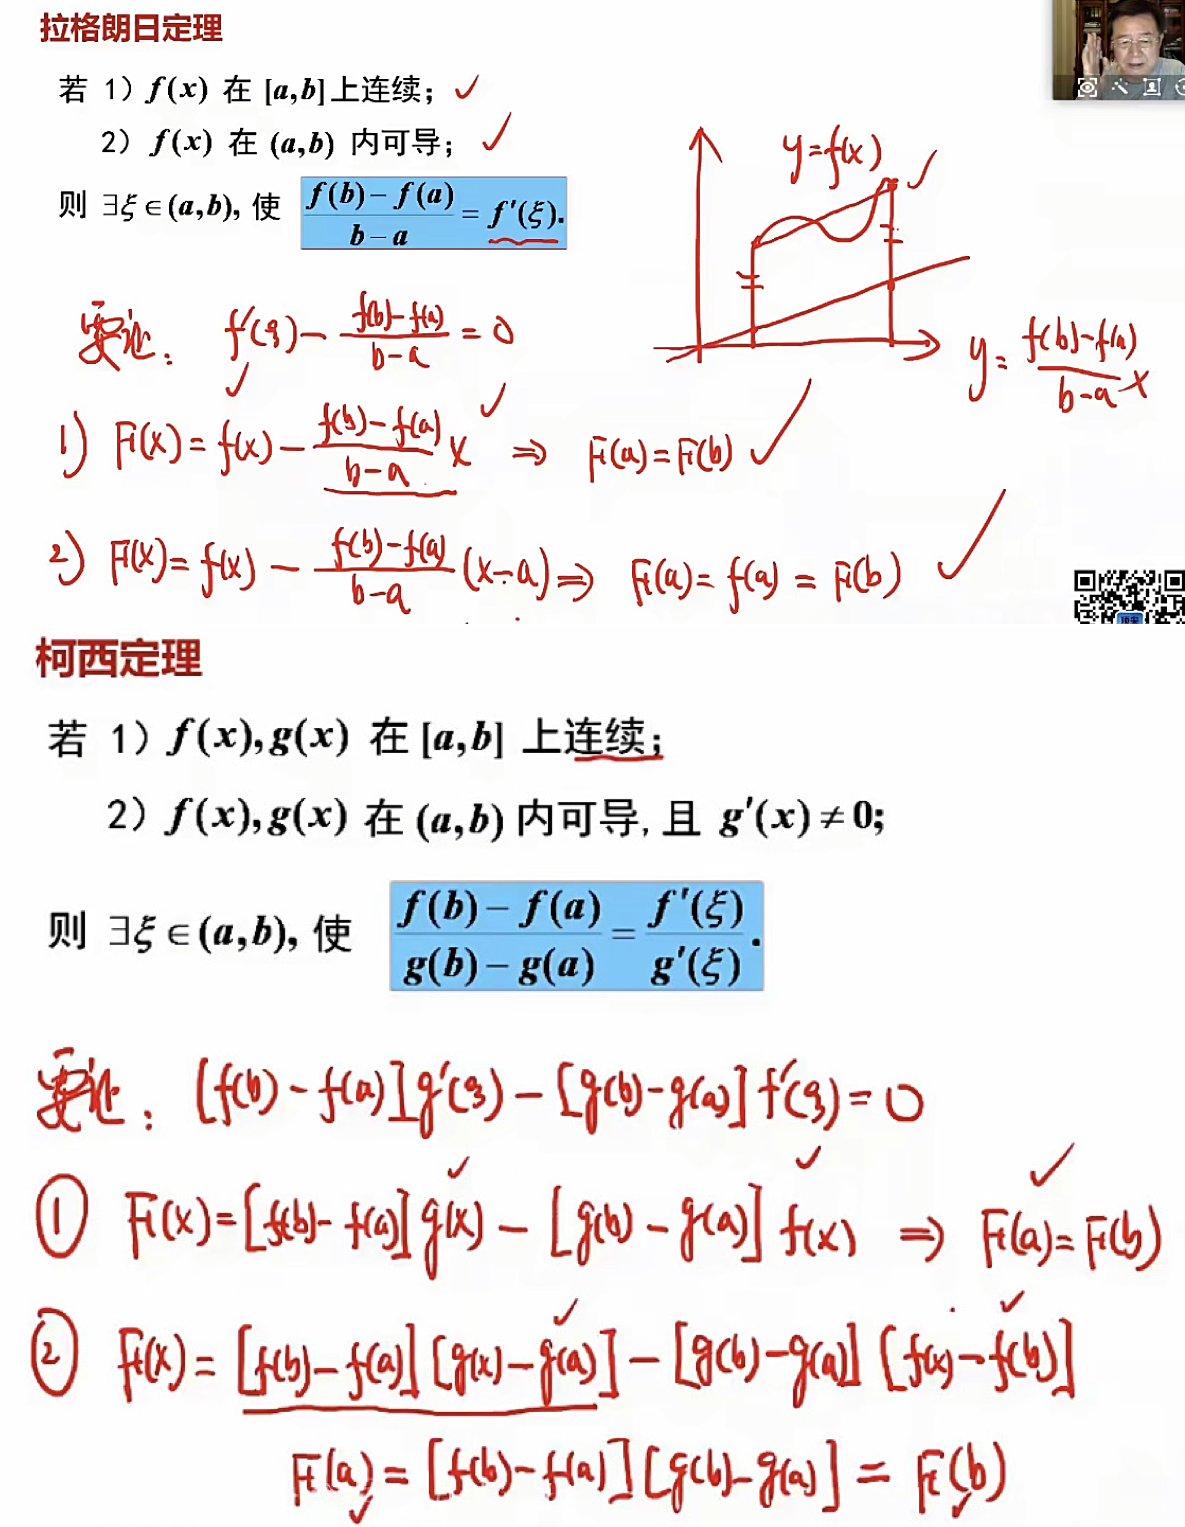 拉格朗日定理
若 1) f(x) 在 [a,b]上连续; ✓
2) f(x) 在 (a,b) 内可导; ✓
则 ∃ξ∈(a,b), 使 (f(b)−f(a))/(b−a) = f′(ξ).
y=f(x) ✓
y= (f(b)-f(a))/(b-a) x
要证: f′(ξ) − (f(b)−f(a))/(b−a) = 0
1) F(x) = f(x) − (f(b)−f(a))/(b−a) x ⇒ F(a)=F(b) ✓
2) F(x)= f(x) − (f(b)−f(a))/(b−a) (x−a) ⇒ F(a)= f(a) = F(b) ✓
柯西定理
若 1) f(x),g(x) 在 [a,b] 上连续;
2) f(x),g(x) 在 (a,b) 内可导, 且 g′(x)≠0;
则 ∃ξ∈(a,b), 使 (f(b)−f(a))/(g(b)−g(a)) = f′(ξ)/g′(ξ).
要证: [f(b)−f(a)]g′(ξ) − [g(b)−g(a)] f′(ξ) = 0
① F(x)=[f(b)−f(a)] g(x) − [g(b)−g(a)] f(x) ⇒ F(a)=F(b) ✓
② F(x) = [f(b)−f(a)] [g(x)−g(a)] − [g(b)−g(a)] [f(x)−f(b)]
F(a) = [f(b)−f(a)][g(b)−g(a)] = F(b)